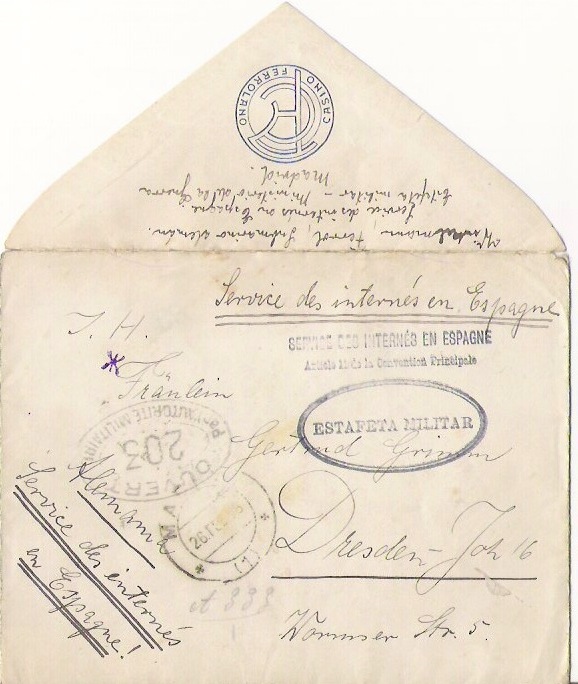 CASINO FERROLANO
Ferrol, Submarino alemán.
Service des internés en Espagne
Estafeta militar - Ministerio de la Guerra
Madrid.
Service des internés en Espagne
SERVICE DES INTERNÉS EN ESPAGNE
Article 11 de la Convention Principale
ESTAFETA MILITAR
Fräulein
Gertrud Grimm
Dresden - Joh 16
Wormser Str. 5.
OUVERT
Par l'AUTORITÉ MILITAIRE
203
(1)
Alemania
Service des internés
en Espagne!